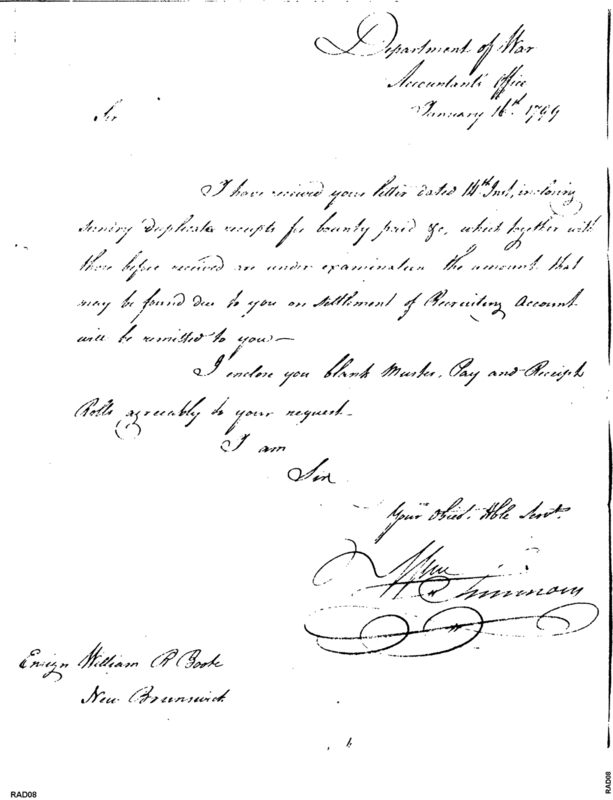 Department of War
Accountant's Office
January 16th. 1799
Sir
I have received your letter dated 14th Inst, inclosing
sundry duplicate receipts for bounty paid &c, which together with
those before received are under examination the amount that
may be found due to you on settlement of Recruiting Account
will be remitted to you—
I enclose you blank Muster, Pay and Receipt
Rolls agreeably to your request—
I am
Sir
Your Obed. Hble Servt.
Wm Simmons
Ensign William R Boote
New Brunswick
RAD08
RAD08